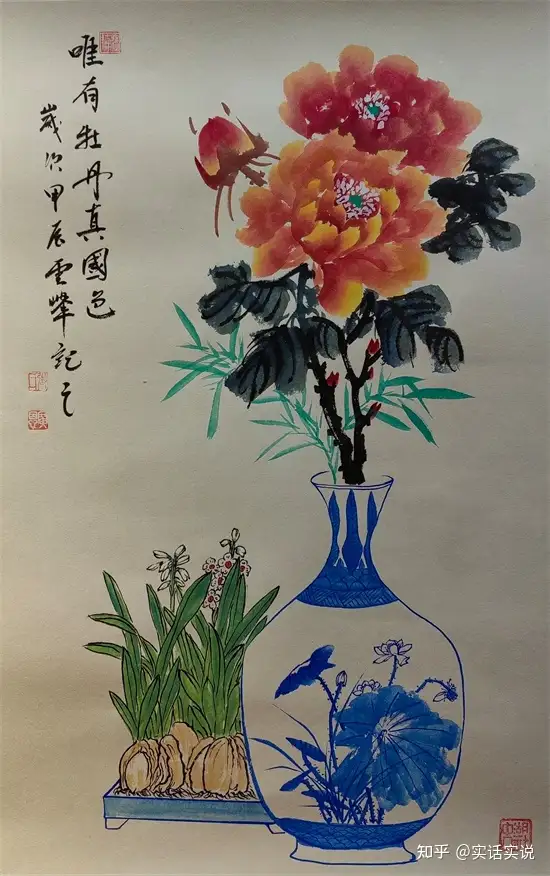 唯有牡丹真國色
歲次甲辰雲峯記之
知乎 @实话实说